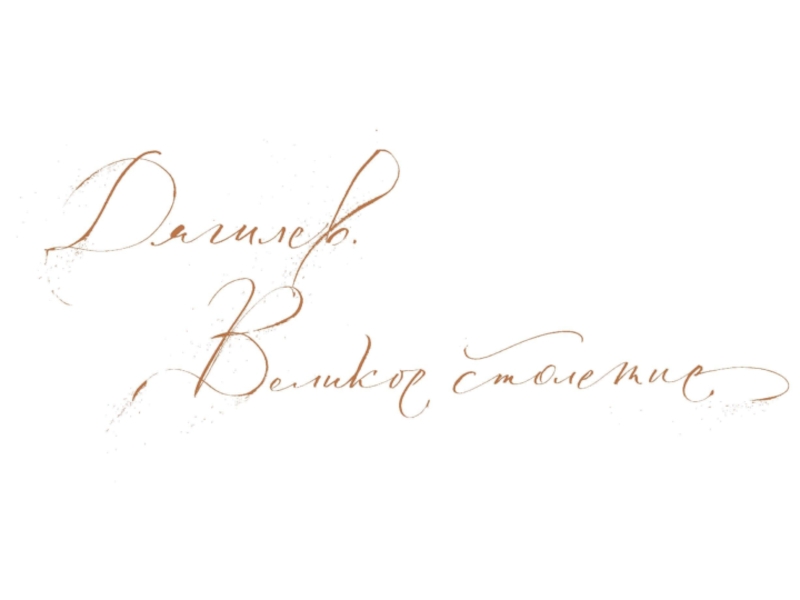 Дягилев.
Великое столетие